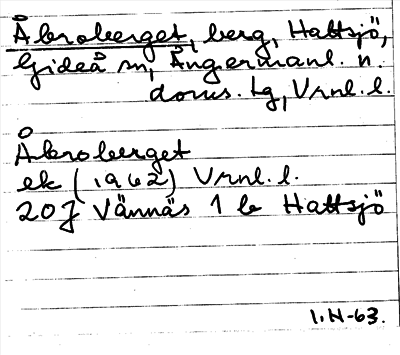 Åbroberget, berg, Hattsjö,
Gideå sn, Ångermanl. n.
doms. tg, Vrnl. l.
Åbroberget
ek (1962) Vrnl. l.
20J Vännäs 1 b Hattsjö
1.N-63.